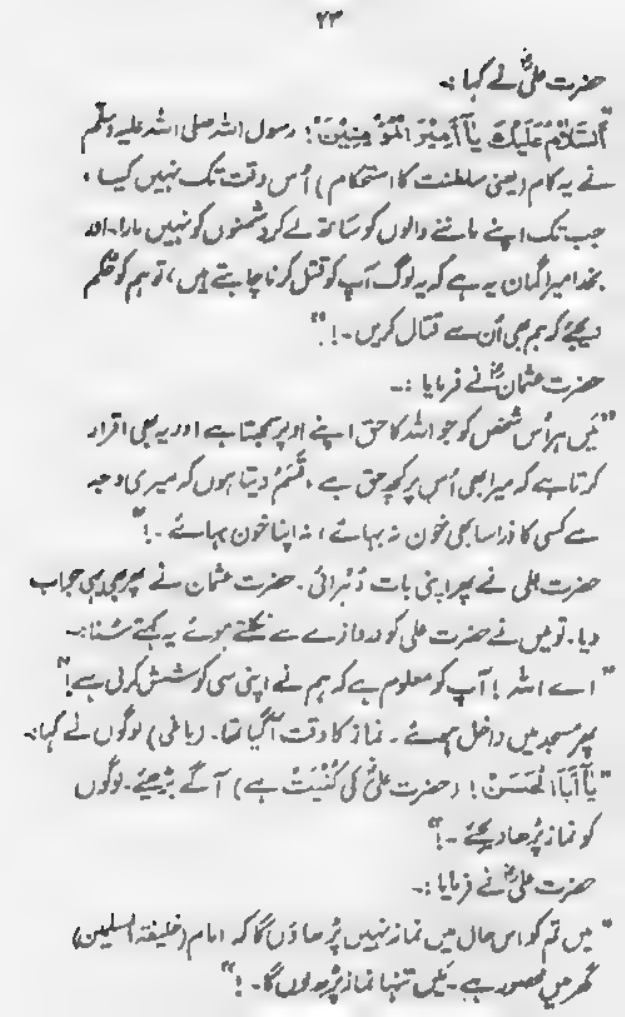 ۲۳
حضرت علیؓ نے کہا :۔
"اَلسَّلَامُ عَلَیْکَ یَا اَمِیْرَ الْمُؤْمِنِیْنَ! رسول اللہ صلی اللہ علیہ وسلم
نے یہ کام (یعنی سلطنت کا استحکام) اُس وقت تک نہیں کیا ،
جب تک اپنے ماننے والوں کو ساتھ لے کر دشمنوں کو نہیں مارا۔ اور
بخدا میرا گمان یہ ہے کہ یہ لوگ آپ کو قتل کرنا چاہتے ہیں، تو ہم کو حُکم
دیجئے کہ ہم بھی اُن سے قتال کریں۔!"
حضرت عثمانؓ نے فرمایا :۔
"میَں ہر اُس شخص کو جو اللہ کا حق اپنے اوپر سمجھتا ہے اور یہ بھی اقرار
کرتا ہے کہ میرا بھی اُس پر کچھ حق ہے ، قَسَمْ دیتا ہوں کہ میری وجہ
سے کسی کا ذرا سا بھی خون نہ بہائے ، نہ اپنا خون بہائے ۔!"
حضرت علی نے پھر اپنی بات دُہرائی ۔ حضرت عثمان نے پھر بھی یہی جواب
دیا۔ تو میں نے حضرت علی کو دروازے سے نکلتے ہوئے یہ کہتے سُنا :۔
"اے اللہ ! آپ کو معلوم ہے کہ ہم نے اپنی سی کوشش کرلی ہے!"
پھر مسجد میں داخل ہوئے ۔ نماز کا وقت آگیا تھا۔ (باغی) لوگوں نے کہا :۔
"یَا اَبَا الْحَسَنْ ! (حضرت علیؓ کی کُنْیَتْ ہے) آگے بڑھیئے۔ لوگوں
کو نماز پڑھا دیجئے ۔!"
حضرت علیؓ نے فرمایا :۔
"میں تم کو اس حال میں نماز نہیں پڑھاؤں گا کہ امام (خلیفۃ المسلمین)
گھر میں محصور ہے ۔ میَں تنہا نماز پڑھ لوں گا۔ !"